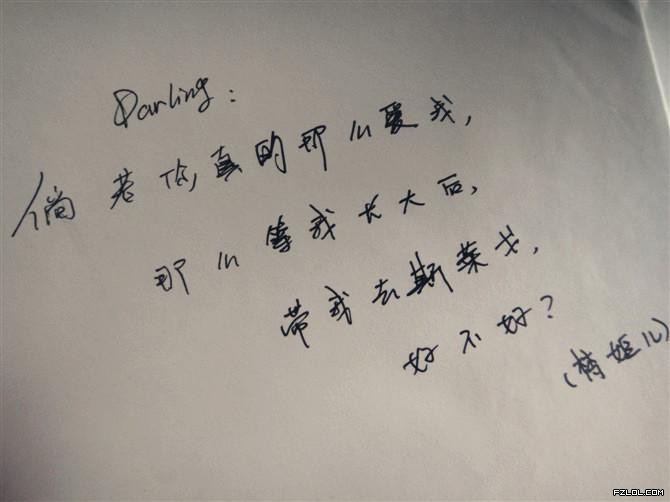 Darling:
倘若你真的那么爱我,
那么等我长大后,
带我去斯莱戈,
好不好?
(楠姬儿)
FZLOL.COM